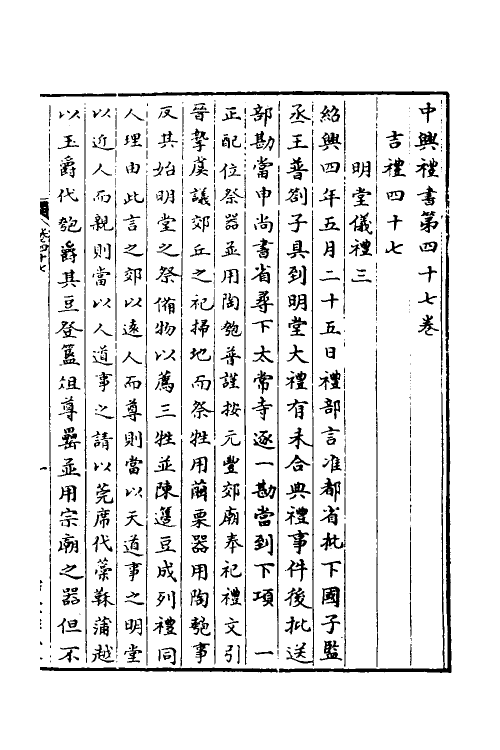 中興禮書第四十七卷
吉禮四十七
明堂儀禮三
紹興四年五月二十五日禮部言准都省批下國子監
丞王普劄子具到明堂大禮有未合典禮事件後批送
部勘當申尚書省尋下太常寺逐一勘當到下項　一
正配位祭器並用陶匏普謹按元豐郊廟奉祀禮文引
晉摯虞議郊丘之祀掃地而祭牲用繭栗器用陶匏事
反其始明堂之祭備物以薦三牲並陳籩豆成列禮同
人理由此言之郊以遠人而尊則當以天道事之明堂
以近人而親則當以人道事之請以莞席代藁秣蒲越
以玉爵代匏爵其豆登簋俎尊罍並用宗廟之器但不
卷四十七
一